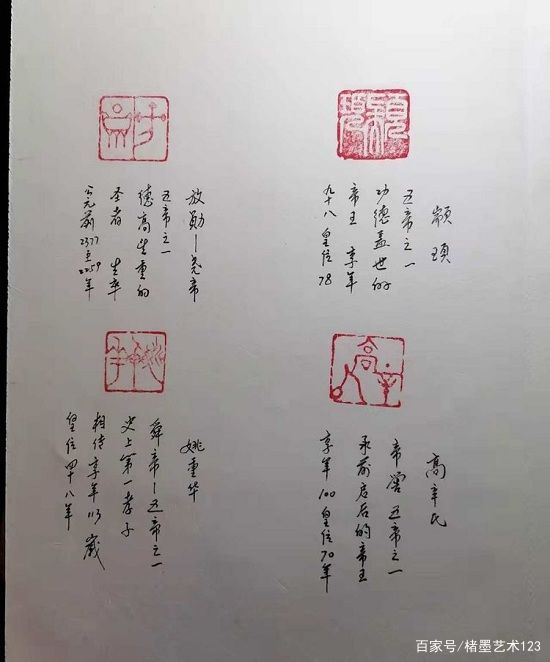 颛顼
五帝之一
功德盖世的
帝王 享年
九十八 皇位78
放勋—尧帝
五帝之一
德高望重的
圣者 生卒
公元前2377至2259年
高辛氏
帝喾 五帝之一
承前启后的帝王
享年100皇位70年
姚重华
舜帝—五帝之一
史上第一孝子
相传享年113歲
皇位四十八年
百家号/楮墨艺术123